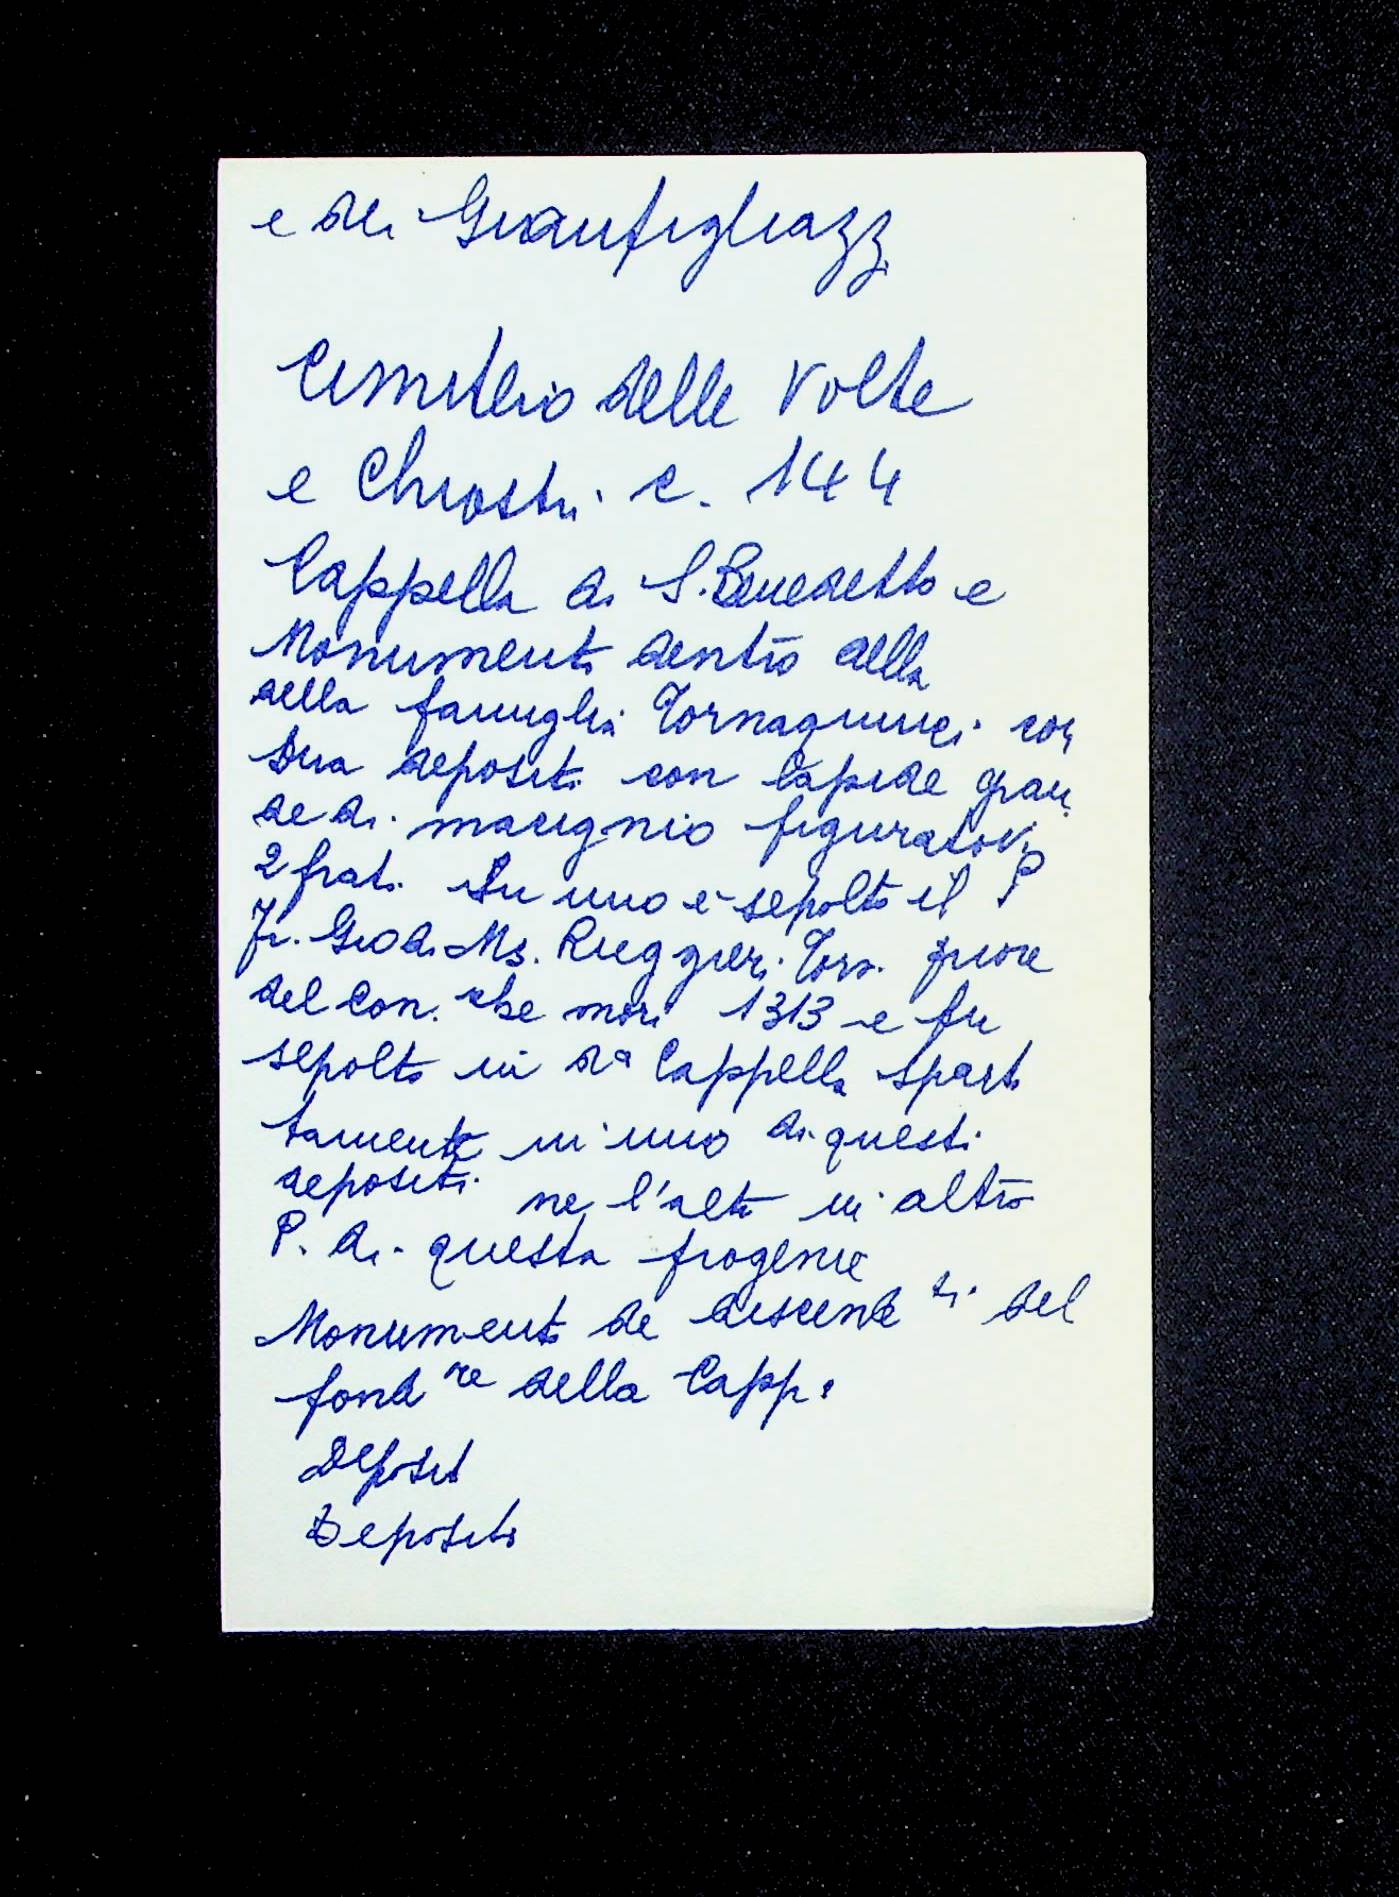 e dei Gianfigliazzi
Cimiterio delle Volte
e Chiostri. c. 144
Cappella di S. Benedetto e
Monumenti dentro della
della famiglia Tornaquinci con
dua depositi con lapide gran
de di macignio figuratovi
2 frati. In uno è sepolto il P
Fr. Gio di Ms. Ruggieri Torn. priore
del Con. che morì 1313 e fu
sepolto in da Cappella Sparti
tamente in uno di questi
depositi ne l'alto in altro
P. di questa progenie
Monumento de discend ti del
fond re della Capp.
Deposit
Deposito